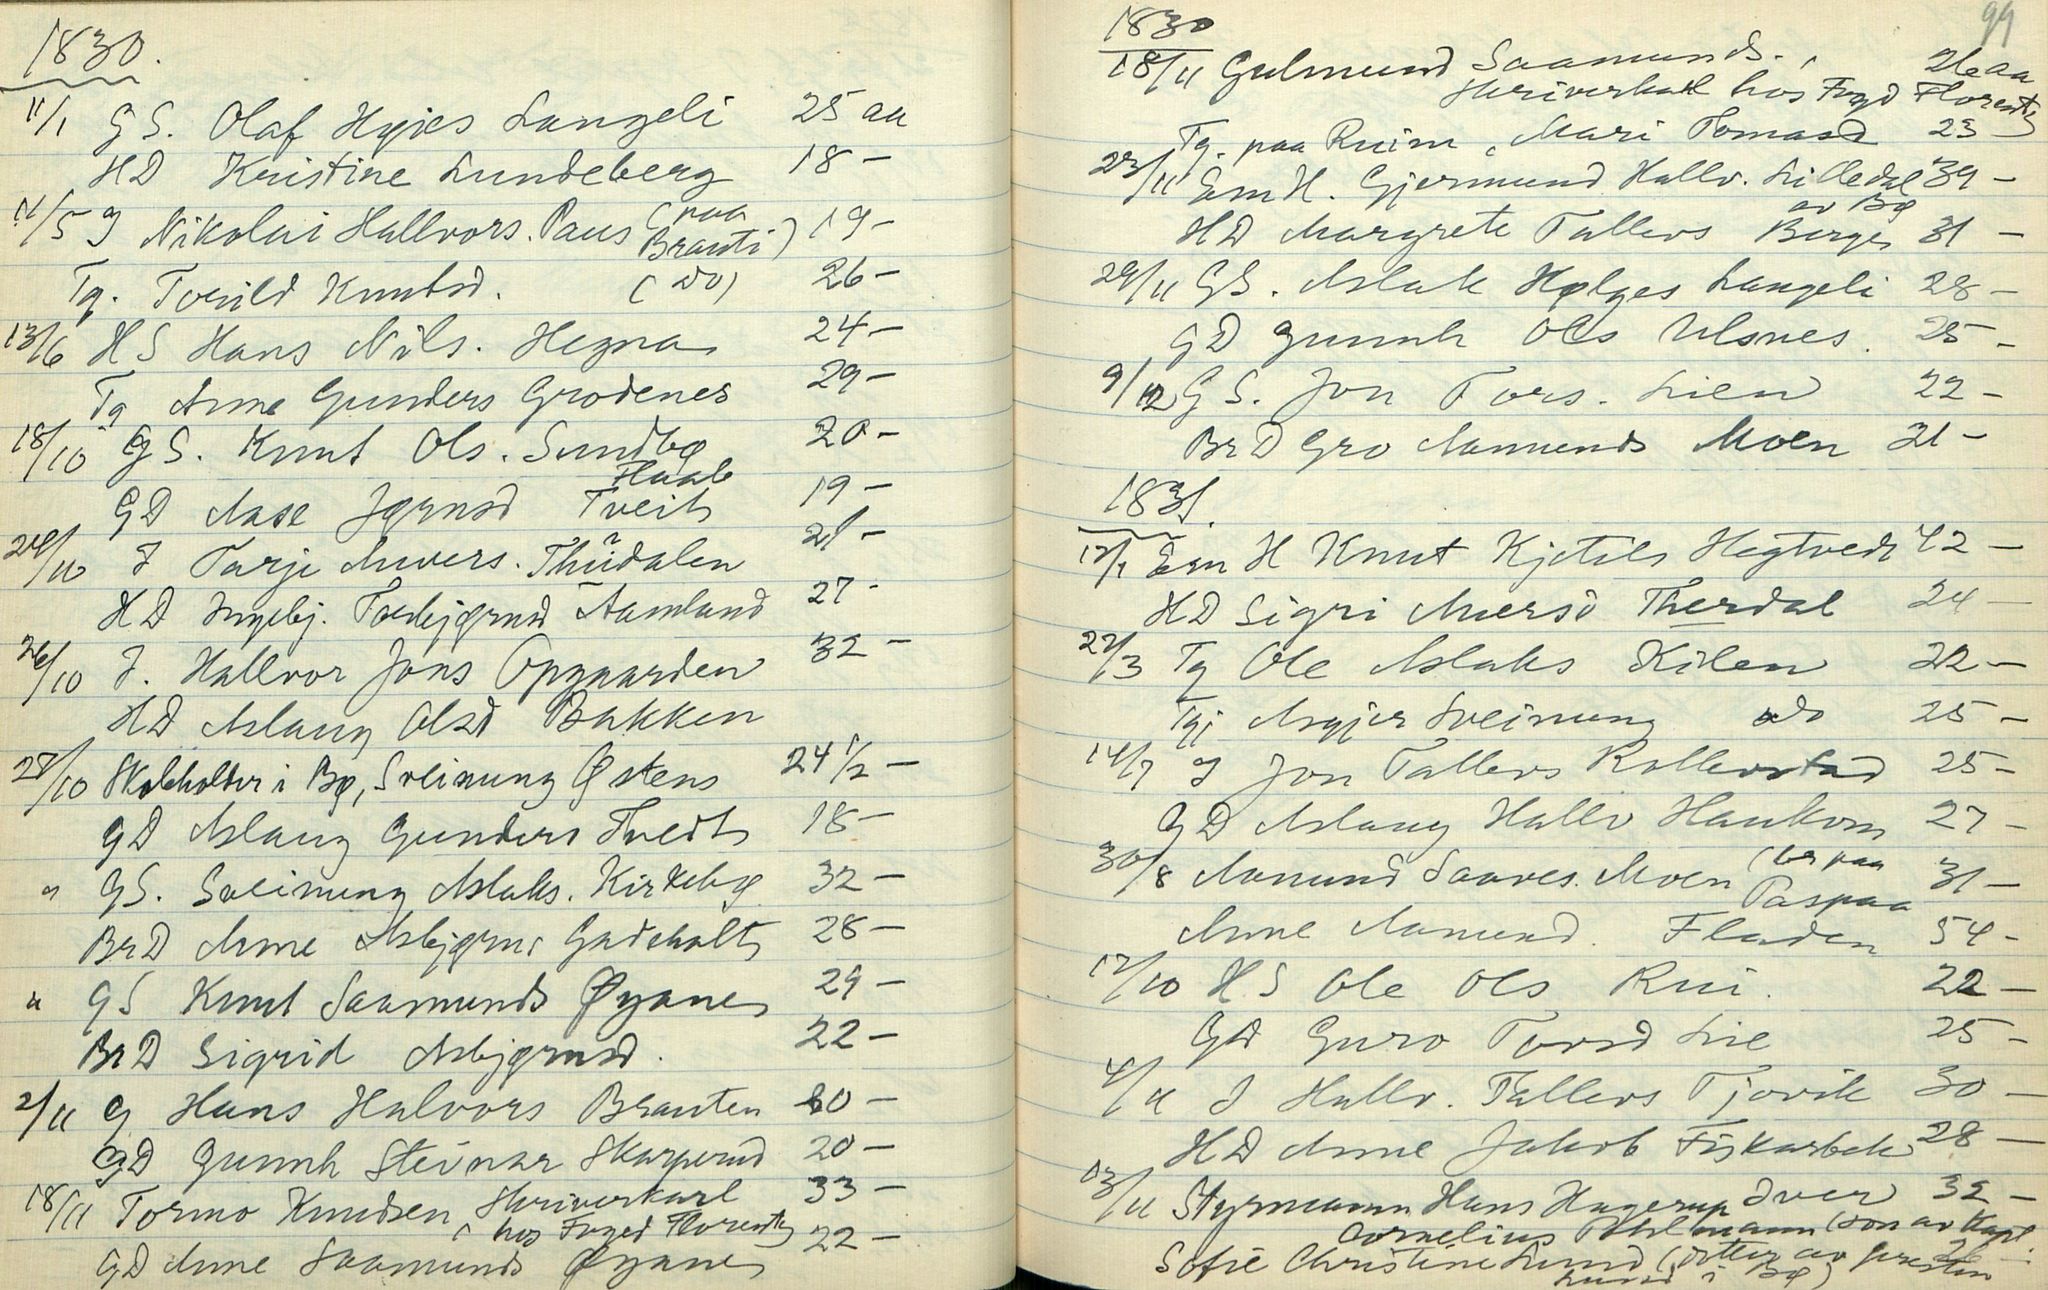 1830.
11/1 GS. Olaf Hæjes Langeli 25 aa
HD Kristine Lundeberg 18 –
11/5 J Nikolai Hallvors. Paus (paa Brauti) 19 –
Tg. Torild Knutsd. (do) 26 –
13/6 HS Hans Nils. Hegna 24 –
Tg Anne Gunders Grodenes 29 –
18/10 GS. Knut Ols. Sundbø 20 –
Flaab
GD Aase Jørnsd Tveit 19 –
24/10 J Tarje Anvers. Thiidalen 21 –
HD Ingebj. Torbjørnsd Aamland 27 –
26/10 J. Hallvor Jons Opgaarden 32 –
HD Aslaug Olsd Bakken
28/10 Skoleholder i Bø, Sveinung Østens 24 1/2 –
GD Aslaug Gunders Tvedt 18 –
" GS. Sveinung Aslaks. Kirkebø 32 –
BrD Anne Asbjørns Gadeholt 28 –
" GS Knut Saamunds Øyane 29 –
BrD Sigrid Asbjørnsd. 22 –
2/11 G Hans Halvors Brauten 80 –
GD Gunnh Steinar Skarperud 20 –
18/11 Tormo Knudsen Skriverkarl 33 –
(hos Foged Florentz
GD Anne Saamunds Øyane 22 –
99
1830
18/11 Gulmund Saamunds. , 26 aa
Skriverkarl hos Fogd Florentz
Tg. paa Ruim, Mari Tomasd 23 –
23/11 Em H. Gjermund Hallv. Lilledal 39 –
av Bø
HD Margrete Tallevs Berge 31 –
29/11 GS. Aslak Hølges Langeli 28 –
GD Gunnh Ols Ulsnes. 25 –
9/12 GS. Jon Tors. Lien 22 –
BrD Gro Aamunds Moen 21 –
1831.
12/1 Em H Knut Kjetils Hegtvedt 42 –
HD Sigri Aversd Therdal 24 –
22/3 Tg Ole Aslaks Kilen 22 –
Tgj Asgjer Sveinung do 25 –
14/7 J Jon Tallevs Rollevstad 25 –
GD Aslaug Hallv Haukom 27 –
30/8 Aamund Saaves. Moen (bor paa 31 –
Paspaa
Anne Aamund. Fladen 54 –
12/10 HS Ole Ols Rui. 22 –
GD Guro Torsd Lie 25 –
4/11 J Hallv. Tallevs Tjovik 30 –
HD Anne Jakob Fiskarbek 28 –
13/11 Styrmann Hans Hagerup Iver 32 –
Cornelius Pohlmann (son av Kapt.
Sofie Christine Lund (dotter av presten 26 –
Lund i Bø)